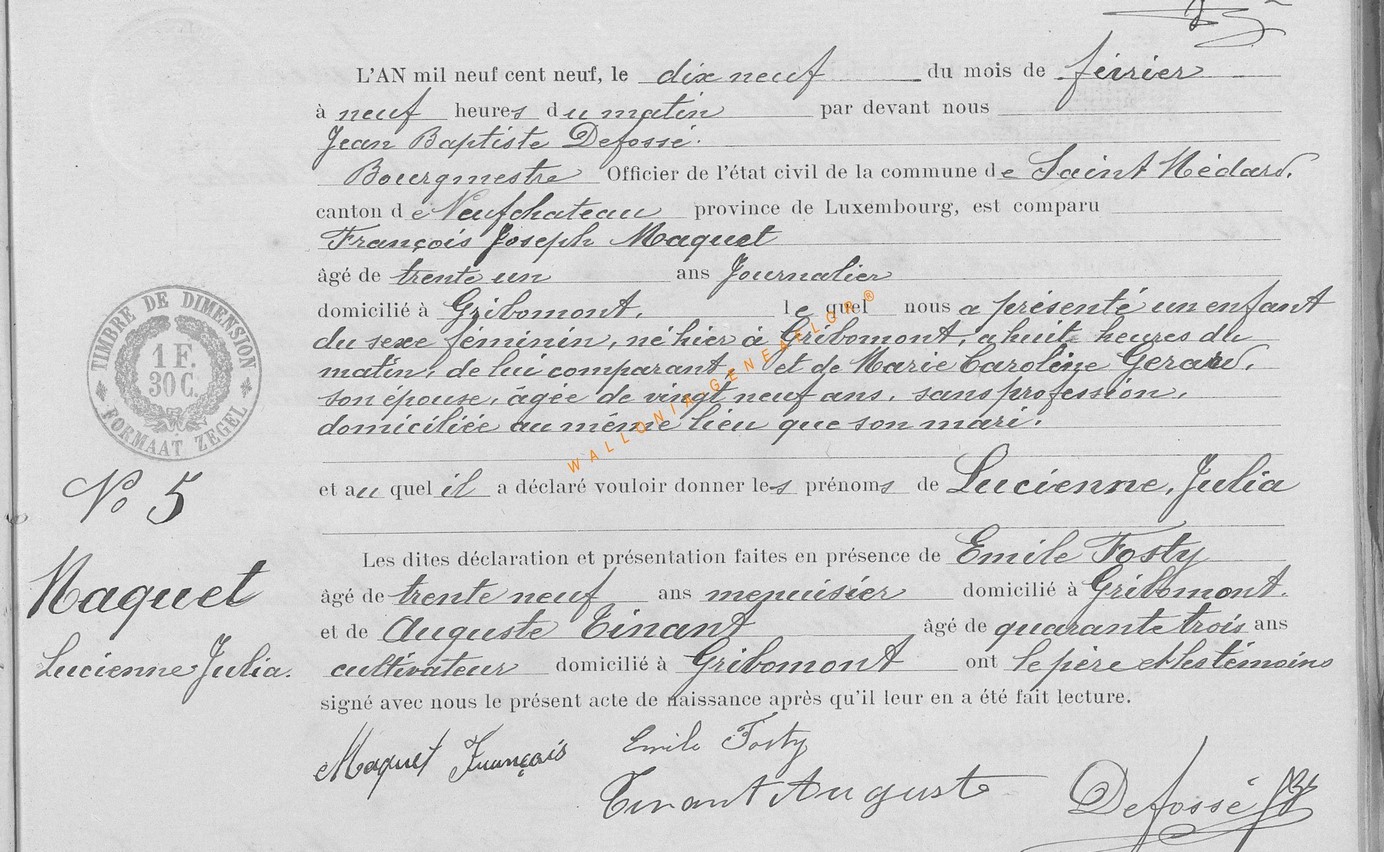 L'AN mil neuf cent neuf, le dix neuf du mois de février
à neuf heures du matin par devant nous
Jean Baptiste Defossé.
Bourgmestre Officier de l'état civil de la commune de Saint Médard,
canton de Neufchateau province de Luxembourg, est comparu
François Joseph Maquet
âgé de trente un ans Journalier
domicilié à Gribomont, le quel nous a présenté un enfant
du sexe féminin, né hier à Gribomont, à huit heures du
matin, de lui comparant, et de Marie Caroline Gerard,
son épouse, âgée de vingt neuf ans, sans profession,
domiciliée au même lieu que son mari.
WALLONIA GENEAFLOR ®
TIMBRE DE DIMENSION
1 F.
30 C.
FORMAAT ZEGEL
No 5
et au quel il a déclaré vouloir donner les prénoms de Lucienne, Julia
Les dites déclaration et présentation faites en présence de Emile Fosty
Maquet
Lucienne Julia.
âgé de trente neuf ans menuisier domicilié à Gribomont.
et de Auguste Tinant âgé de quarante trois ans
cultivateur domicilié à Gribomont ont le père et les témoins
signé avec nous le présent acte de naissance après qu'il leur en a été fait lecture.
Maquet François Emile Fosty
Tinant Auguste Defossé JB